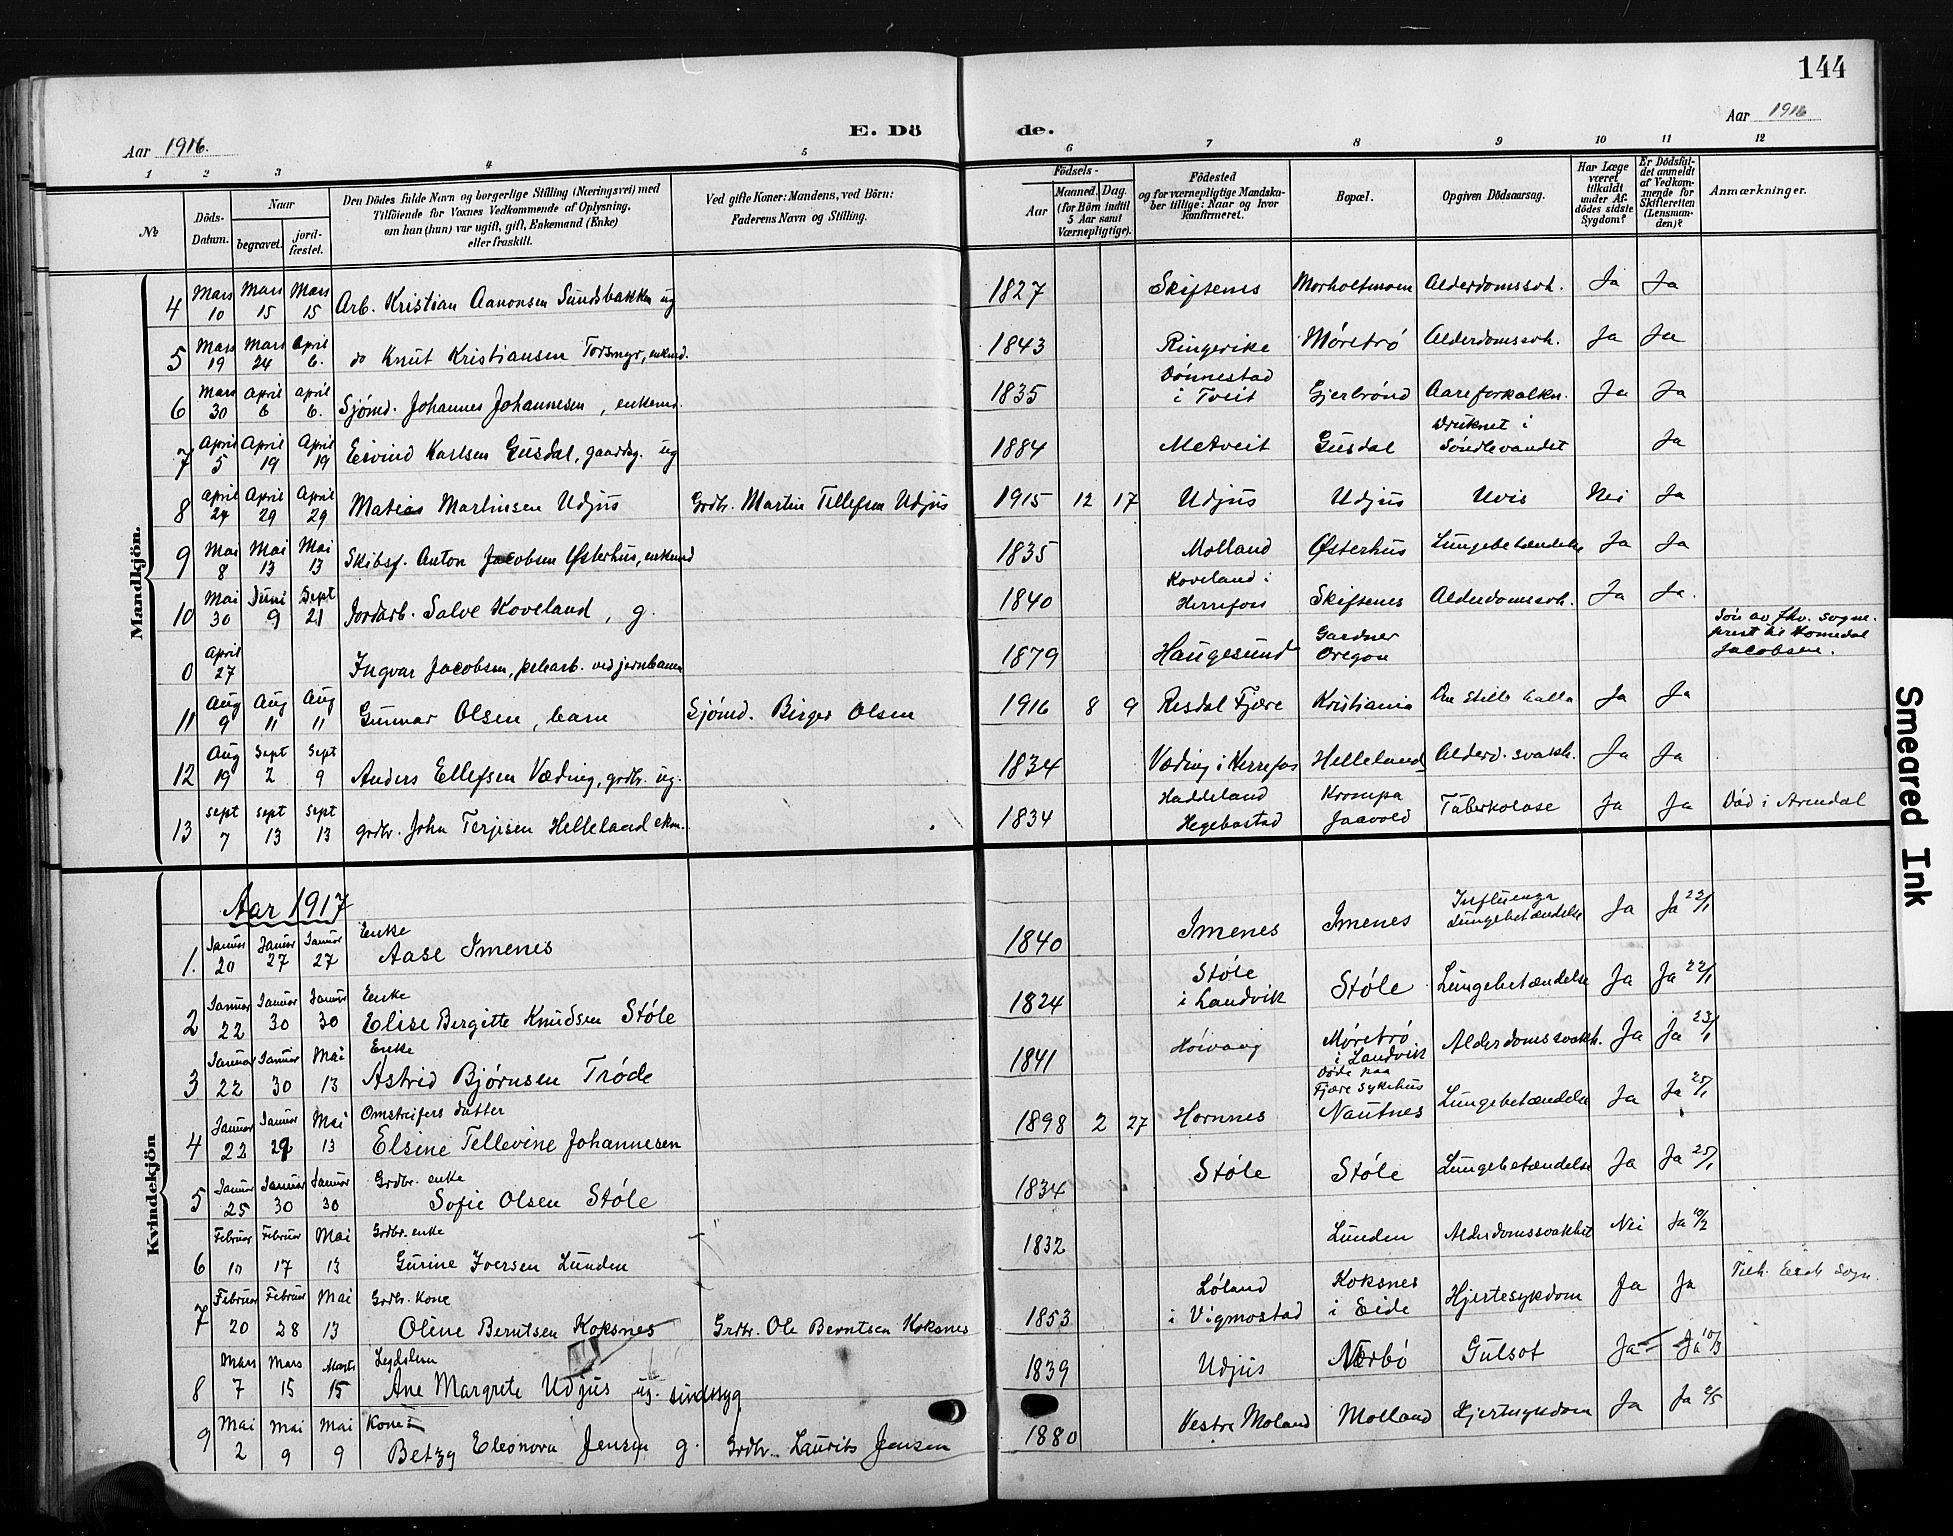 144
E. Dö de.
Aar 1916.
Aar 1916
1 2 3 4 5 6 7 8 9 10 11 12
№
Döds-Datum.
Naar
begravet.
jordfæstet.
Den Dödes fulde Navn og borgerlige Stilling (Næringsvei) med Tilföiende for Voxnes Vedkommende af Oplysning, om han (hun) var ugift, gift, Enkemand (Enke) eller fraskilt.
Ved gifte Koner: Mandens, ved Börn: Faderens Navn og Stilling.
Födsels-
Aar
Maaned. Dag.
(for Börn indtil 5 Aar samt Værnepligtige).
Födested og for værnepligtige Mandskaber tillige: Naar og hvor konfirmeret.
Bopæl.
Opgiven Dödsaarsag.
Har Læge været tilkaldt under Afdödes sidste Sygdom?
Er Dödsfaldet anmeldt af Vedkommende for Skifteretten (Lensmanden)?
Anmærkninger.
Mandkjön.
4 Mars 10 Mars 15 Mars 15 Arb. Kristian Aanonsen Sundsbakken ug 1827 Skiftenes Morholtmoen Alderdomssvh. Ja Ja
5 Mars 19 Mars 24 April 6. do Knut Kristiansen Torsmyr, enkmd. 1843 Ringerike Møretrø Alderdomssvh. Ja Ja
6 Mars 30 April 6 April 6. Sjømd. Johannes Johannesen, enkemd. 1835 Dønnestad i Tveit Gjerbrønd Aareforkalkn. Ja Ja
7 April 5 April 19 April 19 Eivind Karlsen Gusdal, gaardbg. ug 1884 Metveit Gusdal Druknet i Søndlevandet Ja
8 April 24 April 29 April 29 Matias Martinsen Udjus Grdbr. Martin Tellefsen Udjus 1915 12 17 Udjus Udjus Uvis Nei Ja
9 Mai 8 Mai 13 Mai 13 Skibsf. Anton Jacobsen Østerhus, enkemd 1835 Molland Østerhus Lungebetændelse Ja Ja
10 Mai 30 Juni 9 Sept 21 Jordarb. Salve Koveland, g. 1840 Koveland i Herrefoss Skiftenes Alderdomssvh. Ja Ja.
0 April 27 Ingvar Jacobsen, pelearb. ved jernbanen 1879 Haugesund Gardner Oregon Søn av fhv. sogneprest til Homedal Jacobsen.
11 Aug 9 Aug 11 Aug 11 Gunnar Olsen, barn Sjømd. Birger Olsen 1916 8 9 Resdal Fjære Kristiania Ja Ja
12 Aug 19 Sept 2 Sept 9 Anders Ellefsen Væding, grdbr. ug. 1834 Væding i Herrefos Helleland Alderd. svakh. Ja Ja
13 Sept 7 Sept 13 Sept 13 grdbr. John Terjesen Helleland ekm. 1834 Haddeland Hegebostad Krompa Jaavold Tuberkolose Ja Ja Død i Arendal
Kvindekjön
Aar 1917
1. Januar 20 Januar 27 Januar 27 Enke Aase Imenes 1840 Imenes Imenes Influenza Lungebetændelse Ja Ja 22/1
2 Januar 22 Januar 30 Januar 30 Enke Elise Bergitte Knudsen Støle 1824 Støle i Landvik Støle Lungebetændelse Ja Ja 22/1
3 Januar 22 Januar 30 Mai 13 Enke Astrid Bjørnsen Trøde 1841 Høivaag Møretrø i Landvik Alderdomssvakh. Ja Ja 23/1
4 Januar 23 Januar 29 Mai 13 Omstreifers datter Elsine Tellevine Johannesen 1898 2 27 Hornnes Døde paa Fjære Sykehus Nautnes Lungebetændelse Ja Ja 25/1
5 Januar 25 Januar 30 Januar 30 Grdbr. enke Sofie Olsen Støle 1834 Støle Støle Lungebetændelse Ja Ja 25/1
6 Februar 10 Februar 17 Mai 13 Grdbr. enke Gurine Iversen Lunden 1832 Lunden Alderdomssvakhet Nei Ja
7 Februar 20 Februar 28 Mai 13 Grdbr. Kone Oline Berntsen Koksnes Grdbr. Ole Berntsen Koksnes 1853 Løland i Vigmostad Koksnes i Eide Hjertesykdom Ja Ja Tilh. Eide sogn.
8 Mars 7 Mars 15 Marts 15 Legdslem Ane Margrete Udjus ug. sindssyg 1839 Udjus Nørbø Gulsot Ja Ja 10/3
9 Mai 2 Mai 9 Mai 9 Kone Betzy Eleonora Jensen g. Grdbr. Laurits Jensen 1880 Vestre Moland Molland Hjertesykdom Ja Ja 2/5
Smeared Ink